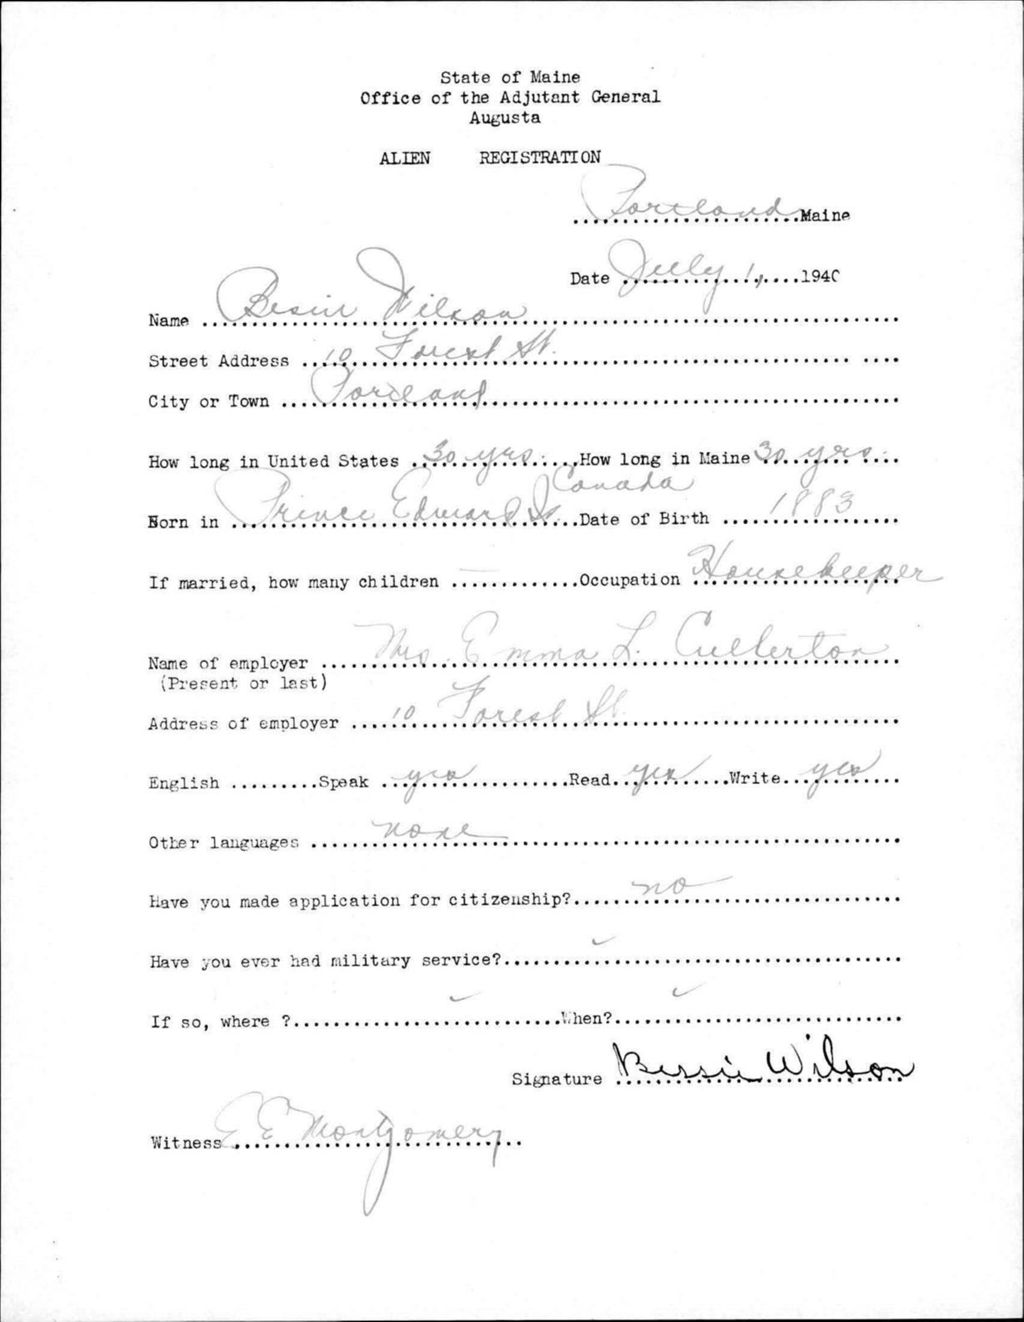 State of Maine
Office of the Adjutant General
Augusta
ALIEN REGISTRATION
Portland Maine
Date July 1, 1940
Name Bessie Wilson
Street Address 10 Forest St.
City or Town Portland
How long in United States 30 yrs. How long in Maine 30 yrs.
Canada
Born in Prince Edward Is. Date of Birth 1883
If married, how many children — Occupation Housekeeper
Name of employer Mrs Emma L. Cullerton
(Present or last)
Address of employer 10 Forest St.
English Speak yes Read yes Write yes
Other languages none
Have you made application for citizenship? no
Have you ever had military service? ✓
If so, where ? ✓ When? ✓
Signature Bessie Wilson
Witness E E Montgomery